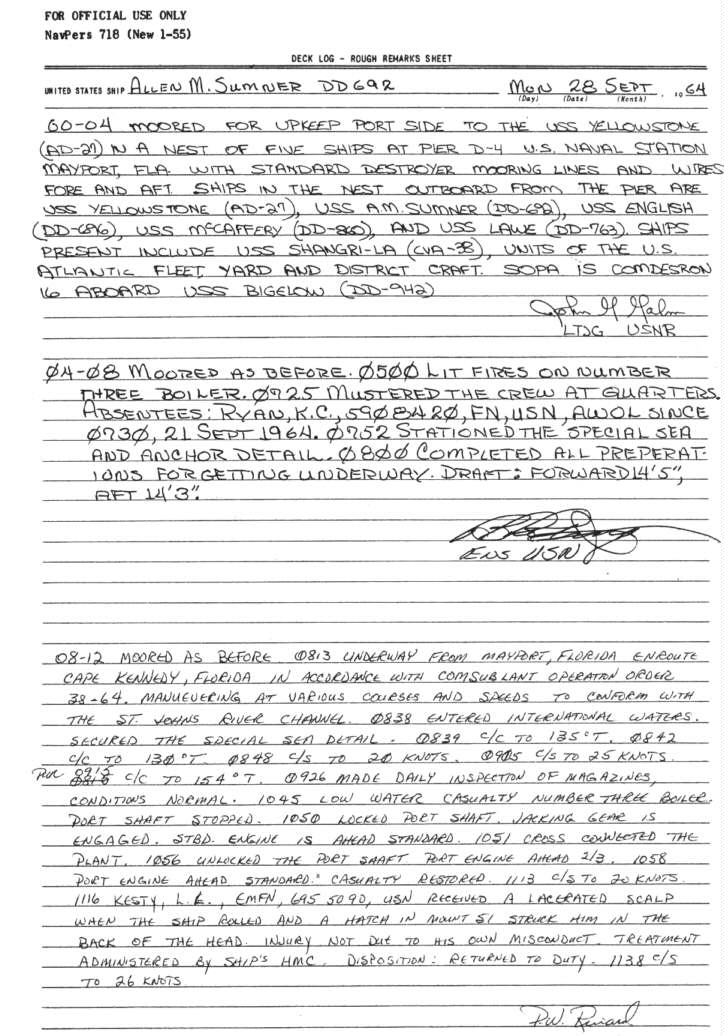 FOR OFFICIAL USE ONLY
NavPers 718 (New 1-55)
DECK LOG - ROUGH REMARKS SHEET
UNITED STATES SHIP ALLEN M. SUMNER DD692 MON 28 SEPT, 1964
(Day) (Date) (Month)
00-04 MOORED FOR UPKEEP PORT SIDE TO THE USS YELLOWSTONE
(AD-27) IN A NEST OF FIVE SHIPS AT PIER D-4 U.S. NAVAL STATION
MAYPORT, FLA. WITH STANDARD DESTROYER MOORING LINES AND WIRES
FORE AND AFT. SHIPS IN THE NEST OUTBOARD FROM THE PIER ARE
USS YELLOWSTONE (AD-27), USS A.M. SUMNER (DD-692), USS ENGLISH
(DD-696), USS McCAFFERY (DD-860), AND USS LAWE (DD-763). SHIPS
PRESENT INCLUDE USS SHANGRI-LA (CVA-38), UNITS OF THE U.S.
ATLANTIC FLEET, YARD AND DISTRICT CRAFT. SOPA IS COMDESRON
16 ABOARD USS BIGELOW (DD-942)
LTJG USNR
Ø4-Ø8 MOORED AS BEFORE. Ø5ØØ LIT FIRES ON NUMBER
THREE BOILER. Ø725 MUSTERED THE CREW AT QUARTERS.
ABSENTEES: RYAN, K.C., 59Ø842Ø, FN, USN, AWOL SINCE
Ø73Ø, 21 SEPT 1964. Ø752 STATIONED THE SPECIAL SEA
AND ANCHOR DETAIL. Ø8ØØ COMPLETED ALL PREPERAT-
IONS FOR GETTING UNDERWAY. DRAFT: FORWARD 14'5",
AFT 14'3".
ENS USN
08-12 MOORED AS BEFORE 0813 UNDERWAY FROM MAYPORT, FLORIDA ENROUTE
CAPE KENNEDY, FLORIDA IN ACCORDANCE WITH COMSUBLANT OPERATION ORDER
38-64. MANUEVERING AT VARIOUS COURSES AND SPEEDS TO CONFORM WITH
THE ST. JOHNS RIVER CHANNEL. 0838 ENTERED INTERNATIONAL WATERS.
SECURED THE SPECIAL SEA DETAIL. 0839 C/C TO 135°T. 0842
C/C TO 130°T 0848 C/S TO 20 KNOTS. 0905 C/S TO 25 KNOTS.
C/C TO 154°T. 0926 MADE DAILY INSPECTION OF MAGAZINES,
CONDITIONS NORMAL. 1045 LOW WATER CASUALTY NUMBER THREE BOILER.
PORT SHAFT STOPPED. 1050 LOCKED PORT SHAFT. JACKING GEAR IS
ENGAGED. STBD. ENGINE IS AHEAD STANDARD. 1051 CROSS CONNECTED THE
PLANT. 1056 UNLOCKED THE PORT SHAFT PORT ENGINE AHEAD 2/3. 1058
PORT ENGINE AHEAD STANDARD. CASUALTY RESTORED. 1113 C/S TO 20 KNOTS.
1116 KESTY, L.E., EMFN, 695 50 90, USN RECEIVED A LACERATED SCALP
WHEN THE SHIP ROLLED AND A HATCH IN MOUNT 51 STRUCK HIM IN THE
BACK OF THE HEAD. INJURY NOT DUE TO HIS OWN MISCONDUCT. TREATMENT
ADMINISTERED BY SHIP'S HMC. DISPOSITION: RETURNED TO DUTY. 1138 C/S
TO 26 KNOTS